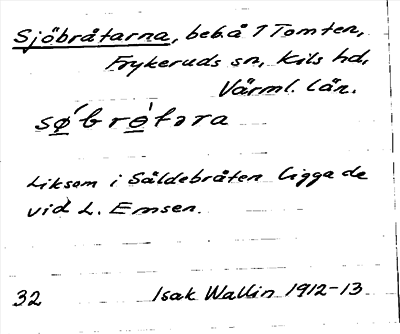 Sjöbråtarna, beb. å 1 Tomten,
Frykeruds sn, Kils hd,
Värml. län.
sø̀brø̀təra
Liksom i Såldebråten ligga de
vid L. Emsen.
32 Isak Wallin 1912-13